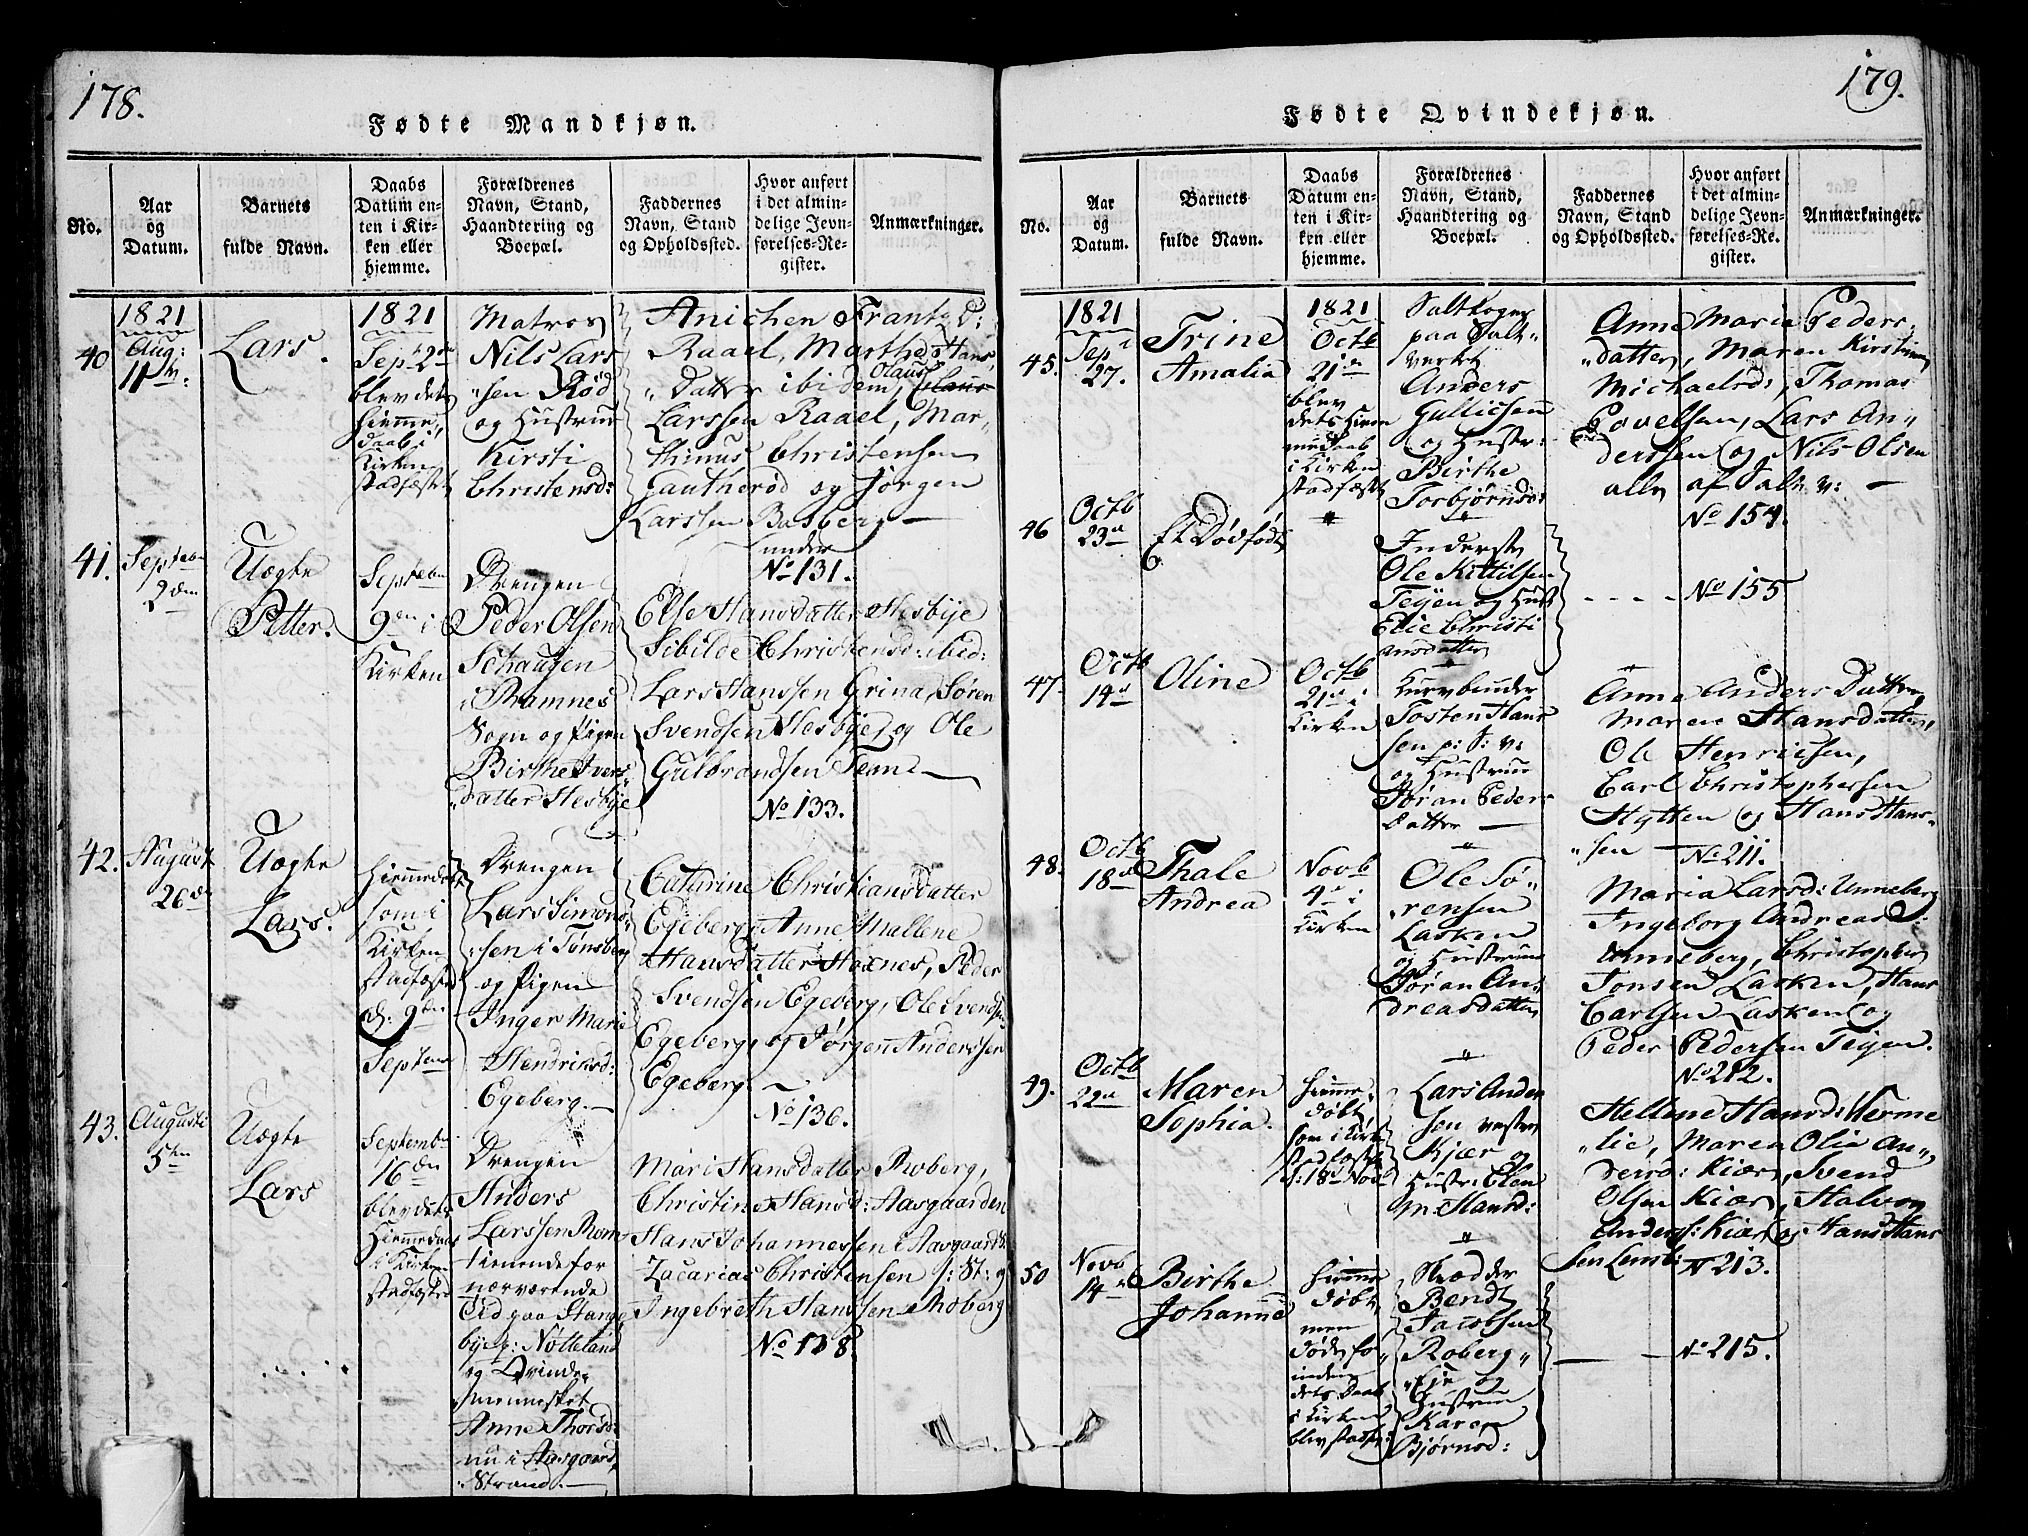 178.
Fødte Mandkjøn.
No.
Aar
og
Datum.
Barnets
fulde Navn.
Daabs
Datum en-
ten i Kir-
ken eller
hjemme.
Forældrenes
Navn, Stand,
Haandtering og
Boepæl.
Faddernes
Navn, Stand
og Opholdssted.
Hvor anført
i det almin-
delige Jevn-
førelses-Re-
gister.
Anmærkninger.
40
1821
Aug:
11
Lars.
1821
Sep 2den
blev dets
Hiemme,
daab i
Kirken
stadfæstet
Matros
Nils Lars
"sen Rød
og Hustrue
Kirsti
Christensd:
Anichen Frantz D:
Raael, Marthe Hans
"Datter ibidem, Olaus
Larssen Raael, Mar,
thinus Christensen
Gautherød og Jørgen
Larssen Basberg —
under
No 131.
41.
Septebr
2den
Uægte
Petter.
Septebr
9den i
Kirken
Drengen
Peder Olsen
Schaugen
i Ramnes
Sogn og Pigen
Birthe Ivers
"datter Hesbye
Else Hansdatter Hesbye
Sibilde Christensd: ibid:
Lars Hanssen Grina, Søren
Svendsen Hesbye, og Ole
Gulbrandsen Tean —
No 133.
42.
August
26de
Uægte
Lars.
Hiemmedøbt
som i
Kirken
stadfæstet
d: 9den
Septem
Drengen
Lars Simons
:sen i Tønsberg
og Pigen
Inger Marie
Hendrichsd:
Egeberg. —
Catarine Christiansdatter
Egeberg, Anne Mallene
Hansdatter Hoxnes, Peder
Svendsen Egeberg, Ole Svendsen
Egeberg, og Jørgen Anderssen
Egeberg. —
No 136.
43.
Augusti
5ten
Uægte
Lars
Septemb
16den
blev dets
Hiemmedaab
i Kirken
stadfæstet
Drengen
Anders
Larssen Rom
tienende for
nærværende
Tid paa Stange
bye p: Nøtteland
og Qvinde,
mennesket
Anne Thorsd:
nu i Aasgaard
Strand. —
Mari Hansdatter Roberg,
Christine Hansd: Aasgaarden
Hans Johannessen i Aasgaards
Zacarias Christensen /: St: og
Ingebreth Hanssen Roberg
No 138
179.
Fødte Qvindekjøn.
No.
Aar
og
Datum.
Barnets
fulde Navn.
Daabs
Datum en-
ten i Kir-
ken eller
hjemme.
Forældrenes
Navn, Stand,
Haandtering og
Boepæl.
Faddernes
Navn, Stand
og Opholdssted.
Hvor anført
i det almin-
delige Jevn-
førelses-Re-
gister.
Anmærkninger.
45.
1821
Sep
27.
Trine
Amalia
1821
Octb
21de
blev
dets Hiem
medaab
i Kirken
stadfæstet
Saltkoger
paa Salt,
verket
Anders
Gullicsen
og Hustr:
Birthe
Torbjørnsd:
Anne Maria Peders,
"datter, Maren Kirstine
Michaelsd:, Thomas
Povelsen, Lars An,
derssen og Nils Olsen
alle af Salt v: —
No 154.
46
Octb
23de
Et Dødfødt
Inderste
Ole Kittilsen
Teyen og Hust
Elie Christi
ansdatter
- - - - No 155
47.
Octb
14de
Oline
Octb
21de i
Kirken
Kurvbinder
Tosten Hans
sen p: S: v:
og Hustrue
Jøran Peders
datter —
Anne Anders Datter,
Maren Hansdatter,
Ole Henricsen,
Carl Christophersen
Hytten og Hans Hans-
"sen — No 211.
48.
Octb
18de
Thale
Andrea
Novb
4de i
Kirken
Ole Sø,
rensen
Lasken
og Hustrue
Jøran An,
dreasdatter
Maria Larsd: Unneberg
Ingeborg Andreas D:
Unneberg, Christopher
Jonsen Lasken, Hans
Carlsen Lasken og
Peder Pedersen Teyen.
No 212.
49.
Octb
22de
Maren
Sophia.
Hiemme
døbt,
som i Kirk
stadfæstet
d: 18de Novb
Lars Ander
sen vestre
Kjær og
Hustr: Elen
M: Hansd:
Hellene Hansd: Verme
"lie, Maren Olia An,
dersd: Kiær, Svend
Olsen Kiær, Halvor
Anders: Kiær og Hans Hans
sen Lensb: N 213.
50
Novb
14de
Birthe
Johanne
Hiemme
døbt,
men
døde fo,
inden
dets Daab
i Kirken
blev stadf:
Skrædder
Bendt
Jacobsen
Roberg"
"Eje og
Hustrue
Karen
Bjørnsd:
— — No 215.